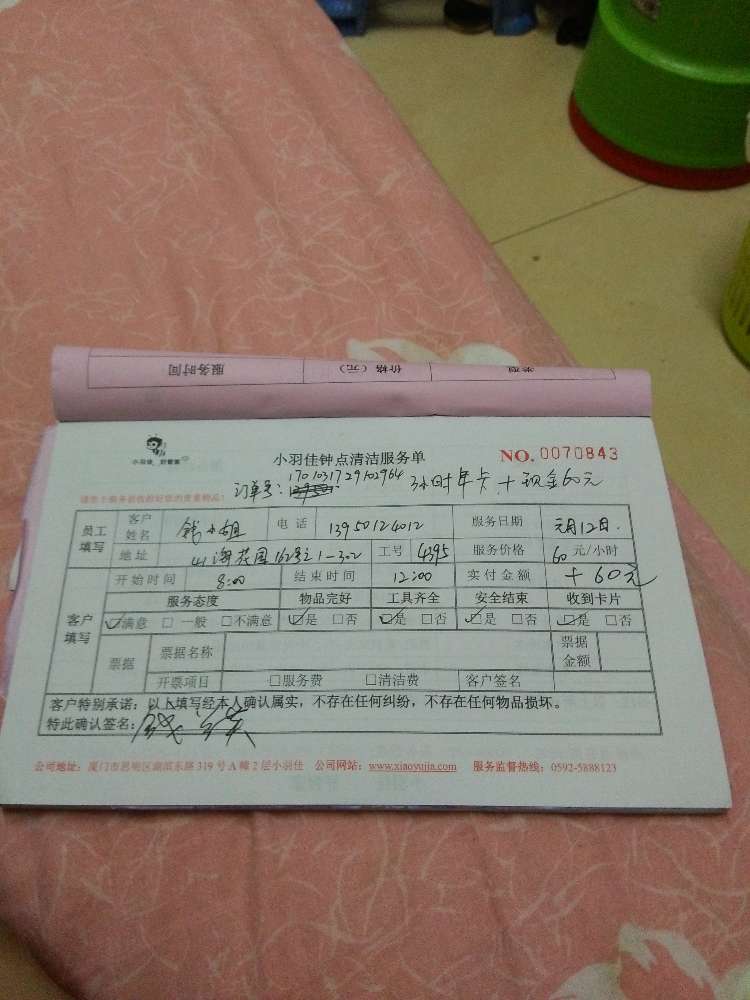 服务时间 价格（元） 类型
小羽佳 好管家
小羽佳钟点清洁服务单 NO. 0070843
订单号： 1701031729102964 3小时年卡 + 现金60元
员工填写 客户姓名 钱小姐 电话 13950124012 服务日期 元月12日.
地址 山海花园162号之1-302 工号 4395 服务价格 60 元/小时
开始时间 8:00 结束时间 12:00 实付金额 +60元
客户填写 服务态度 物品完好 工具齐全 安全结束 收到卡片
☑满意 □一般 □不满意 ☑是 □否 ☑是 □否 ☑是 □否 ☑是 □否
票据 票据名称 票据金额
开票项目 □服务费 □清洁费 客户签名
客户特别承诺：以上填写经本人确认属实，不存在任何纠纷，不存在任何物品损坏。
特此确认签名：
公司地址：厦门市思明区湖滨东路 319 号 A 幢 2 层小羽佳 公司网站：www.xiaoyujia.com 服务监督热线：0592-5888123